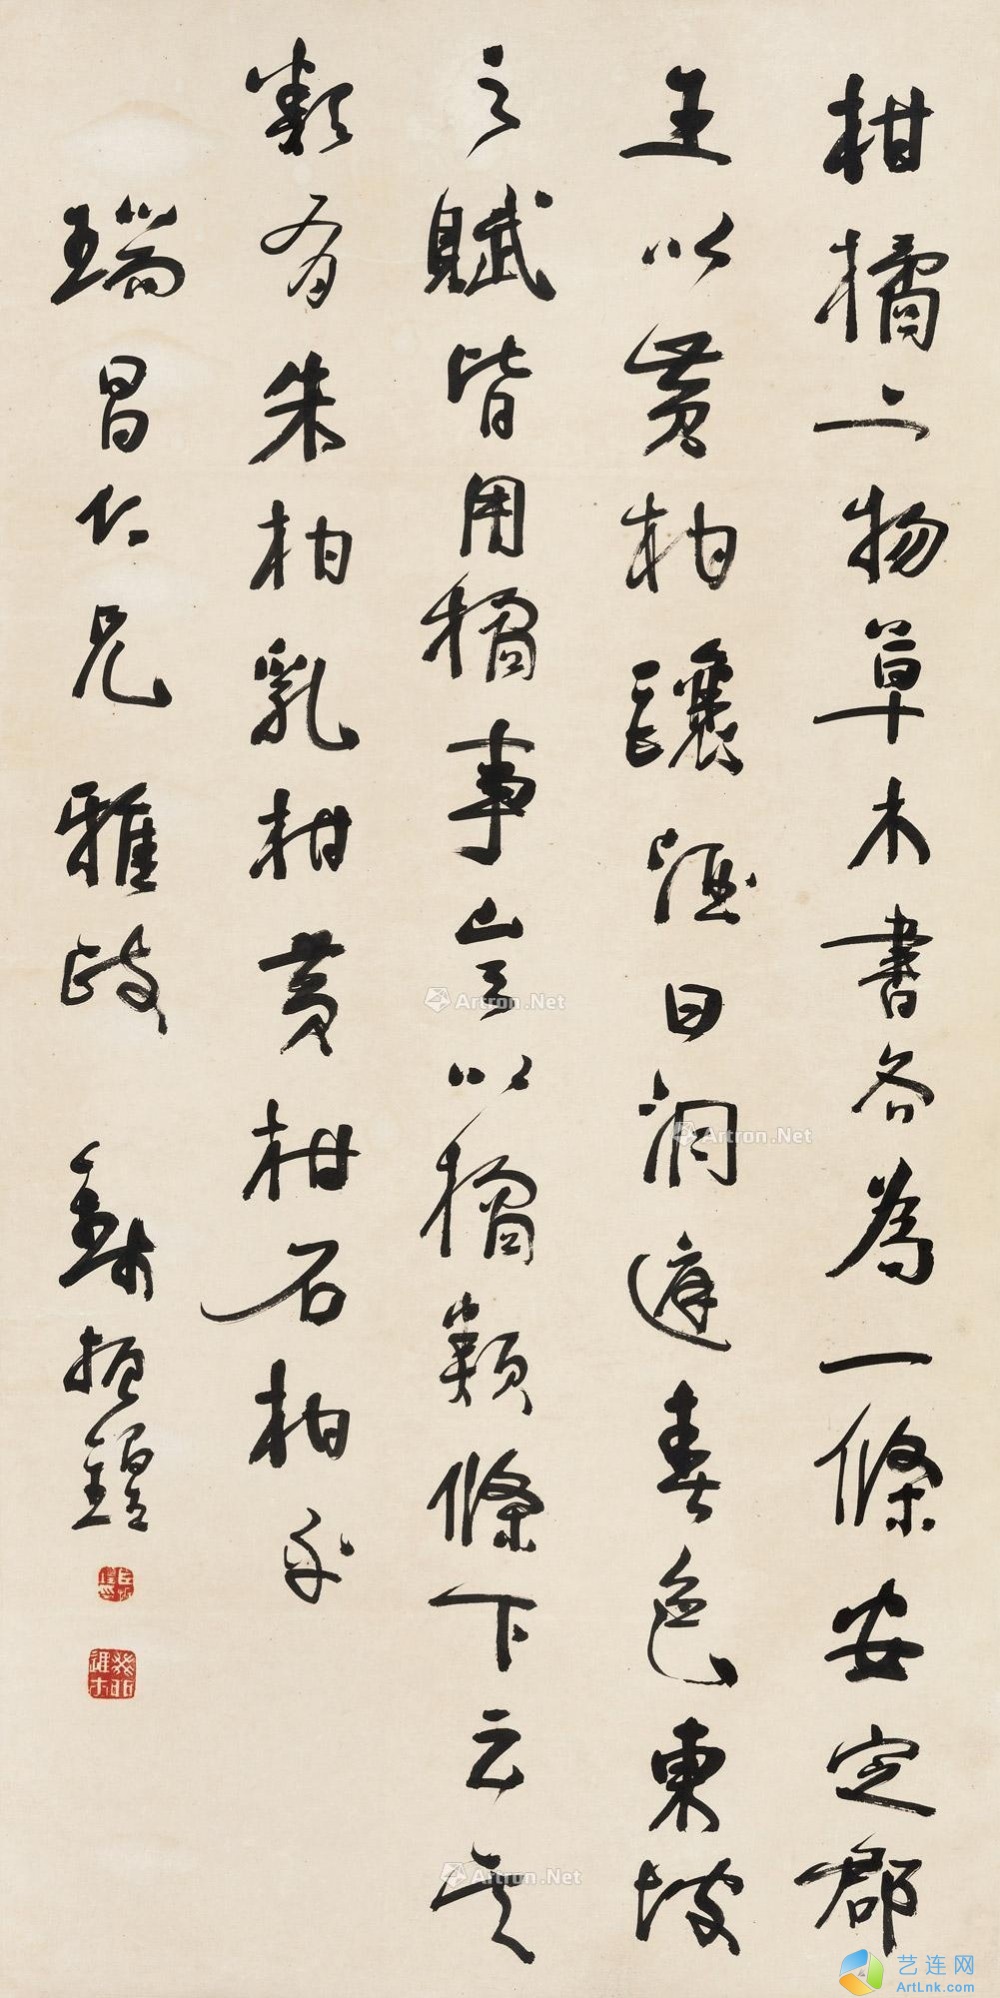 柑橘二物草木書各為一條安定郡
王以黃柑釀酒曰洞庭春色東坡
之賦皆用橘事豈以橘類條下云其
類有朱柑乳柑黃柑石柑乎
瑞昌仁兄雅政 錢振鍠
Artron.Net
Artron.Net
Artron.Net
艺连网
ArtLnk.com